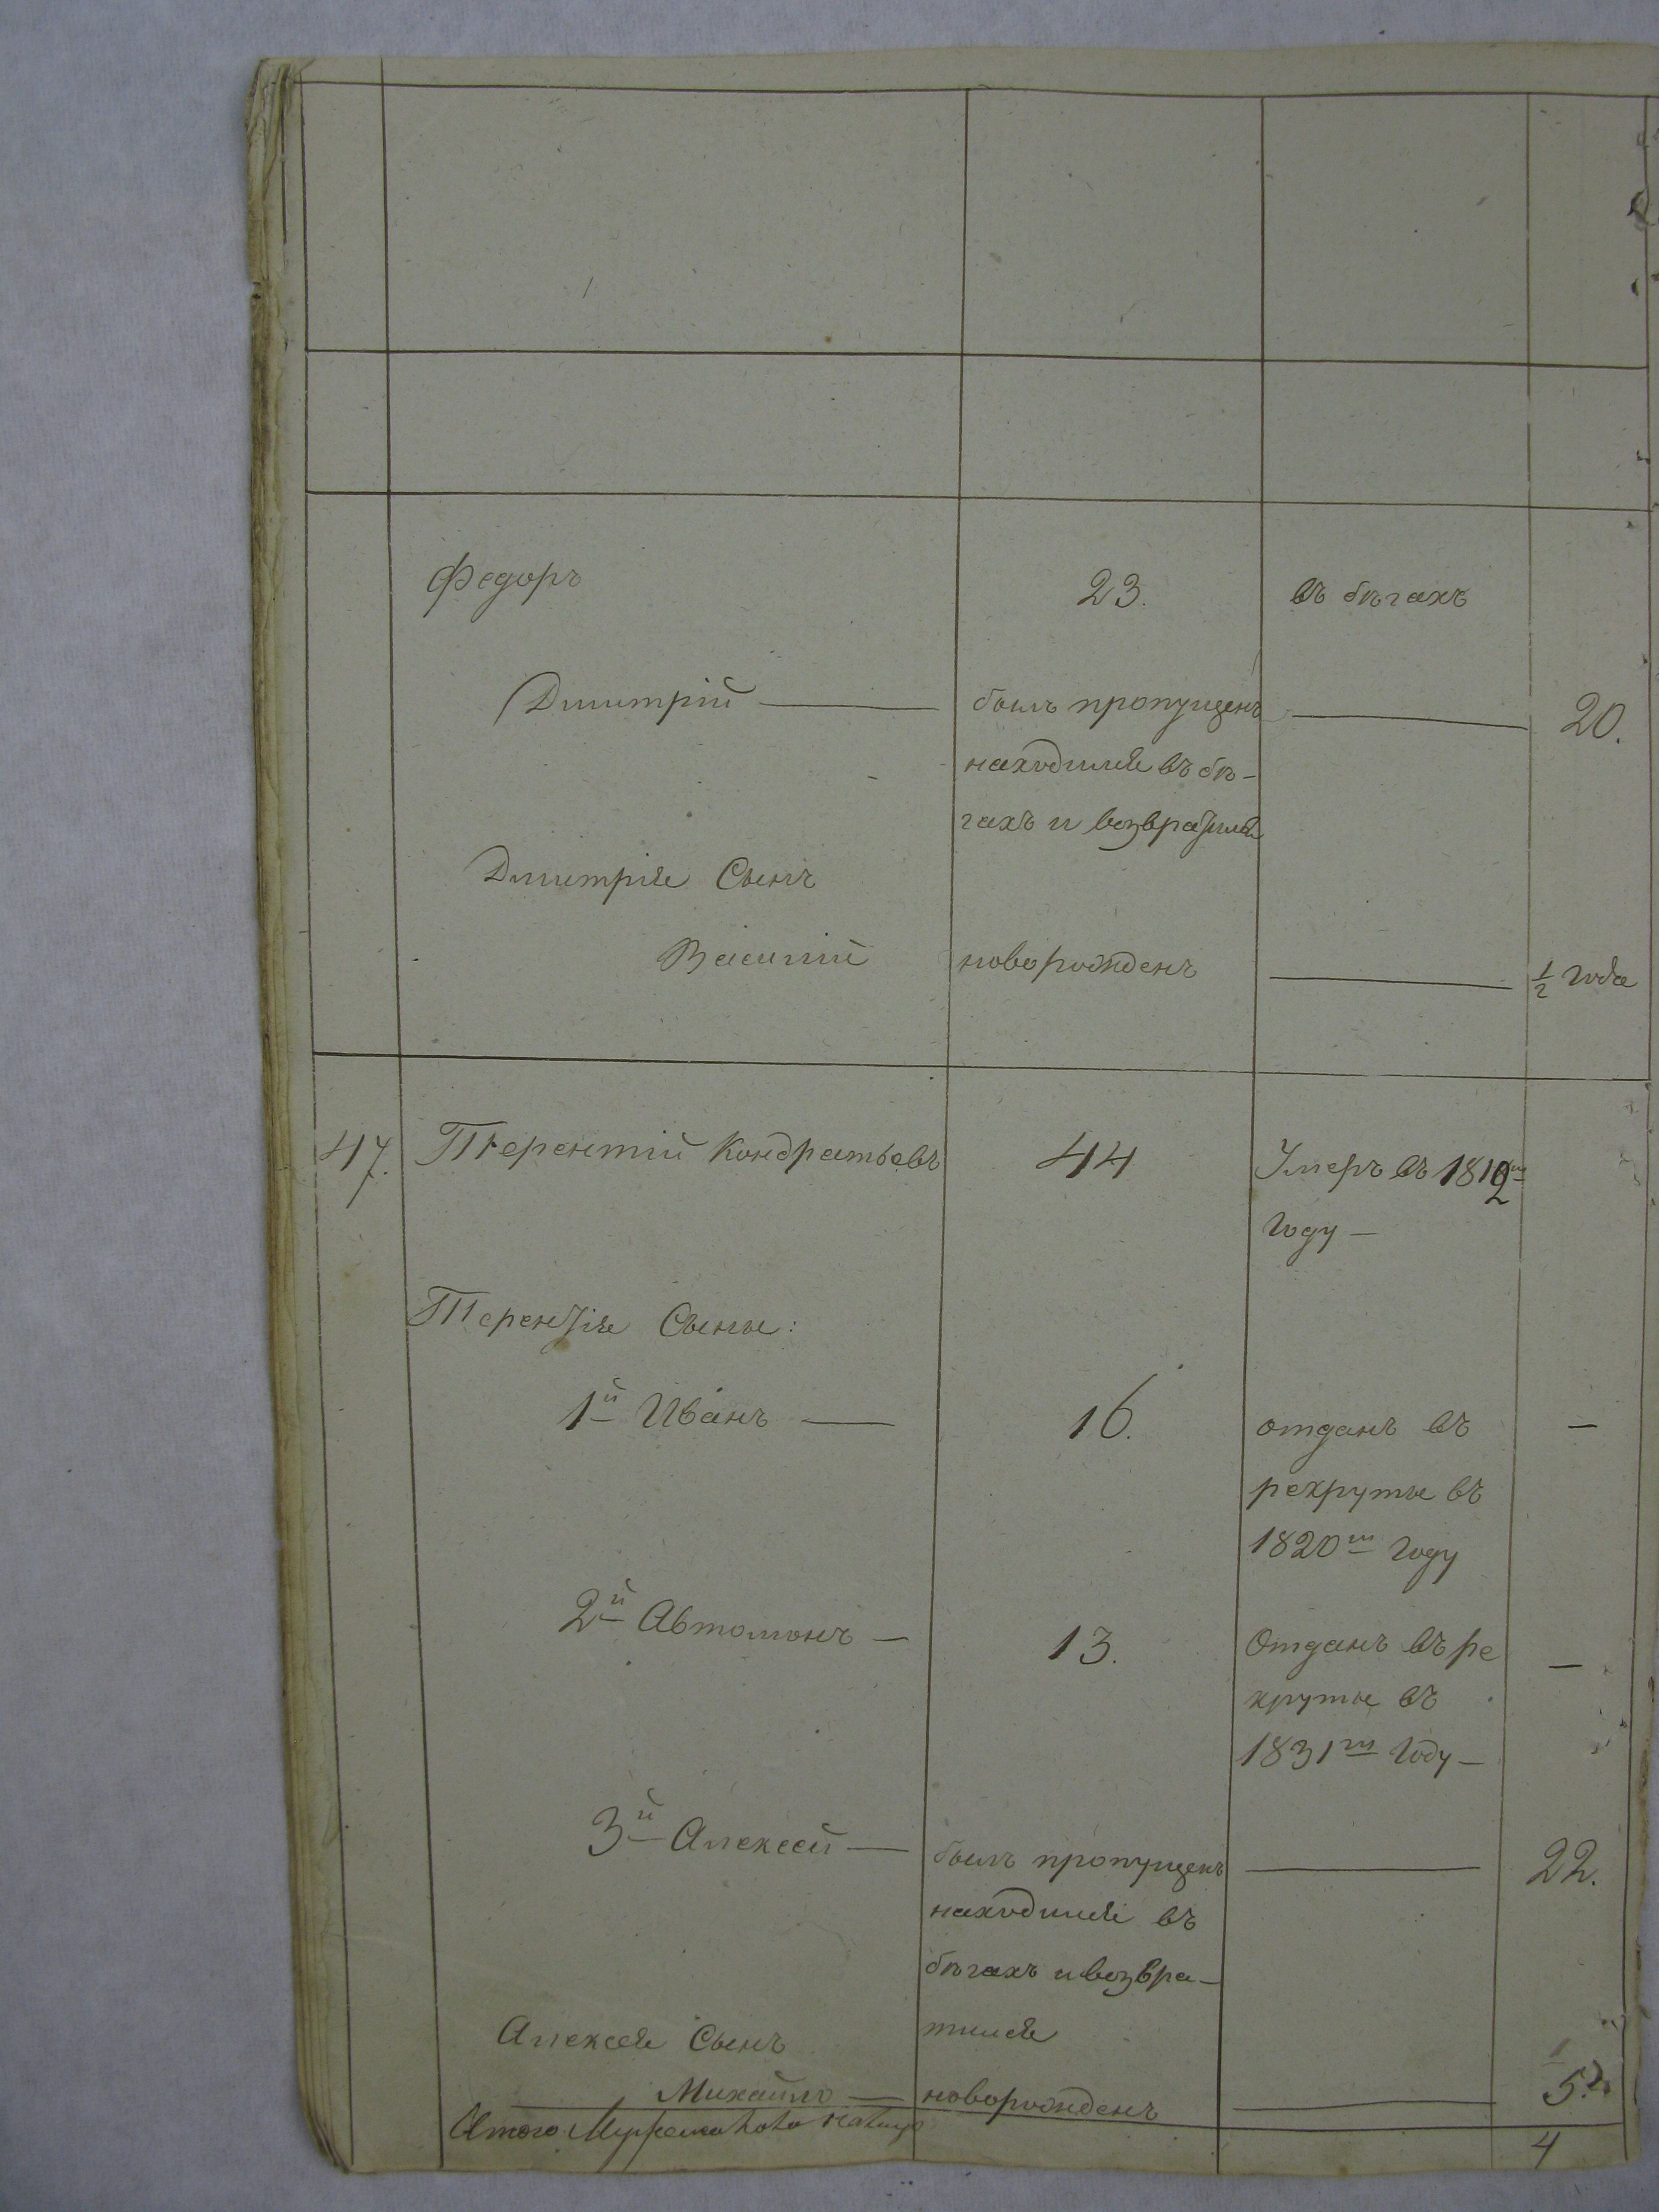 Федоръ 23. въ бѣгахъ
Димитрій — былъ пропущенъ — 20.
находился въ бѣ-
гахъ и возвратился
Димитрія Сынъ
Василий новорожденъ — 1/2 года
47. Терентій Кондратьевъ 44 Умеръ въ 1812м
году —
Терентія Сыны:
1й Иванъ — 16. отданъ въ —
рекруты въ
1820м году
2й Автомонъ — 13. Отданъ въ ре —
круты въ
1831м году —
3й Алексей — былъ пропущенъ — 22.
находился въ
бѣгахъ и возвра-
тился
Алексея Сынъ
Михайло — новорожденъ —
Итого Мужеска пола налицо 4